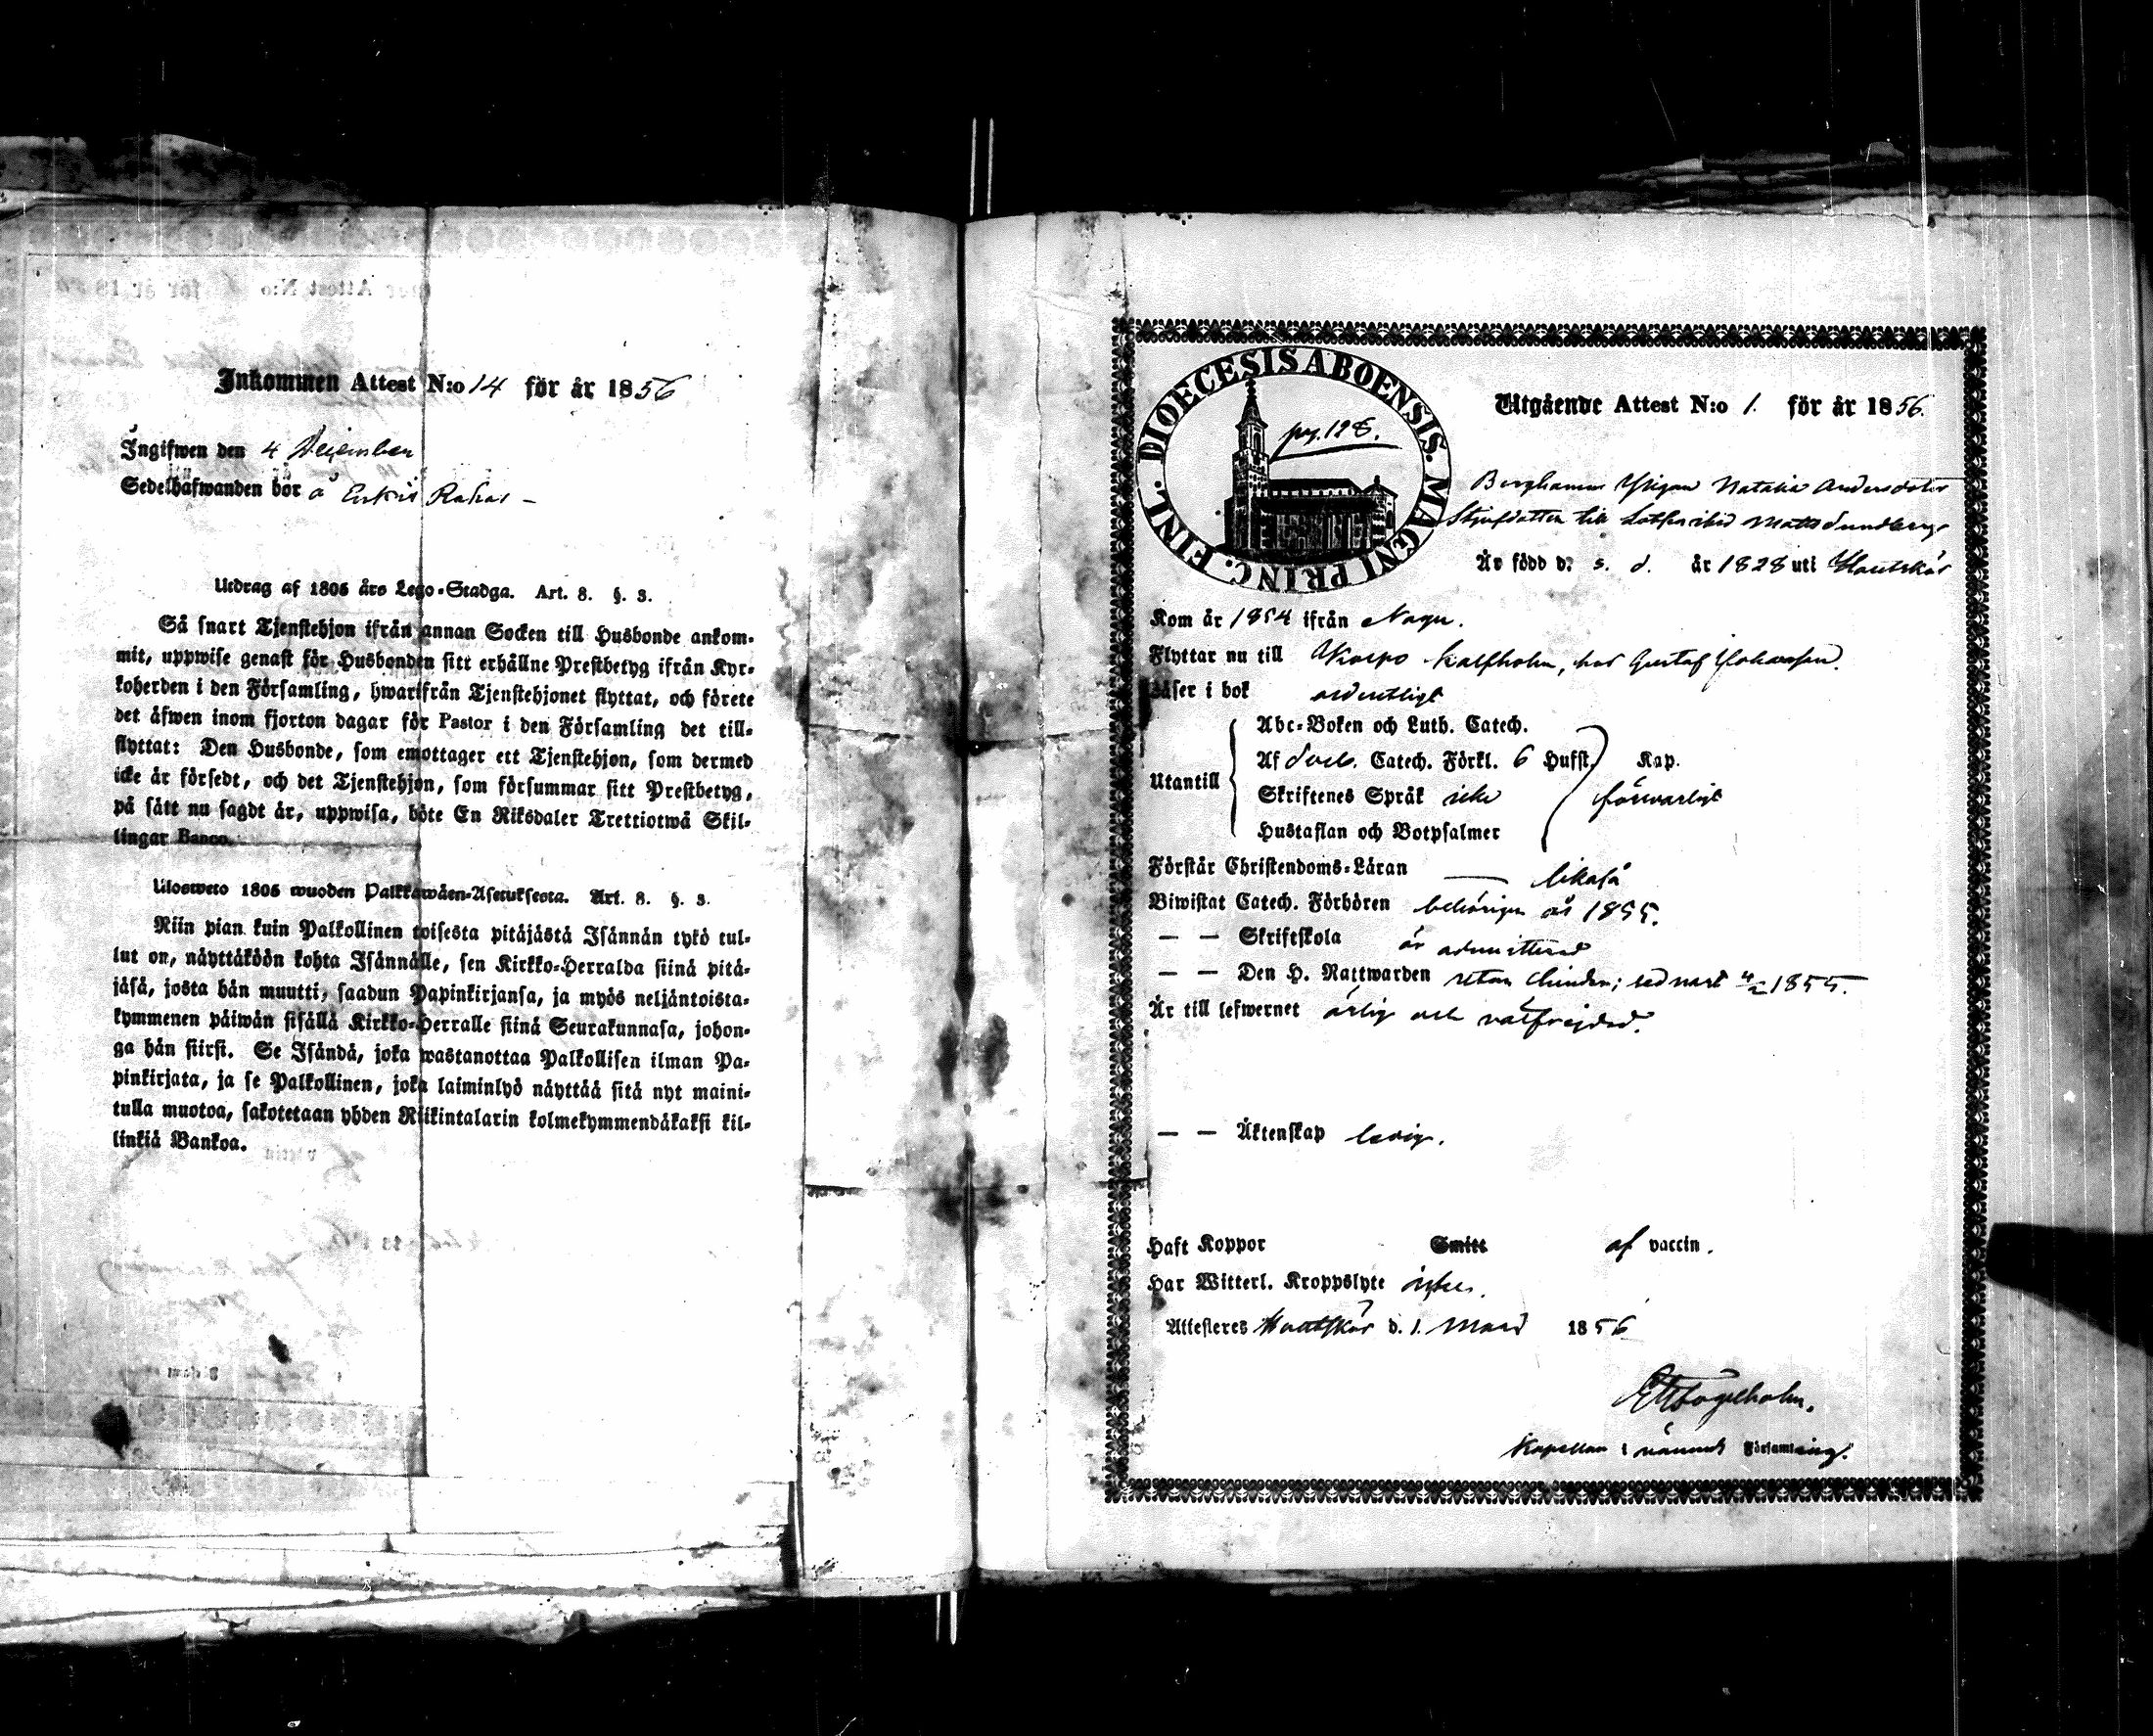 Inkommen Attest N:o 14 för år 1856
Ingifwen den 4 December
Sedelhafwanden bor å
Utdrag af 1805 års Lego-Stadga. Art. 8. §. 3.
Så snart Tjenstehjon ifrån annan Socken till Husbonde ankom-
mit, uppwise genast för Husbonden sitt erhållne Prestbetyg ifrån Kyr-
koherden i den Församling, hwarifrån Tjenstehjonet flyttat, och förete
det äfwen inom fjorton dagar för Pastor i den Församling det till-
flyttat: Den Husbonde, som emottager ett Tjenstehjon, som dermed
icke är försedt, och det Tjenstehjon, som försummar sitt Prestbetyg,
på sätt nu sagdt är, uppwisa, böte En Riksdaler Trettiotwå Skil-
lingar Banco.
Ulosweto 1805 wuoden Palkkawäen-Asetuksesta. Art. 8. §. 3.
Niin pian kuin Palkollinen toisesta pitäjästä Isännän tykö tul-
lut on, näyttäköön kohta Isännälle, sen Kirkko-Herralda siinä pitä-
jäsä, josta hän muutti, saadun Papinkirjansa, ja myös neljäntoista-
kymmenen päiwän sisällä Kirkko-Herralle siinä Seurakunnasa, johon-
ga hän siirsi. Se Isändä, joka wastanottaa Palkollisen ilman Pa-
pinkirjata, ja se Palkollinen, joka laiminlyö näyttää sitä nyt maini-
tulla muotoa, sakotetaan yhden Riikintalarin kolmekymmendäkaksi kil-
linkiä Bankoa.
DIOECESIS ABOENSIS. MAGNI PRINC. FINL.
pag. 128.
Utgående Attest N:o 1. för år 1856.
Berghamn Pigan Natalia Andersdotter
Styfdotter till Matts Sundberg
Är född d. s. d. år 1828 uti Houtskär
Kom år 1854 ifrån Nagu.
Flyttar nu till Korpo Kalfholm, hos Gustaf Johansson.
Läser i bok ordentligt
Utantill
Abc-Boken och Luth. Catech.
Af Sveb. Catech. Förkl. 6 Hufst. Kap.
Skriftenes Språk icke försvarligt
Hustaflan och Botpsalmer
Förstår Christendoms-Läran likaså
Biwistat Catech. Förhören behörigen år 1855.
— — Skriftskola är admitterad
— — Den H. Nattwarden utan hinder; sednast 1855.
Är till lefwernet ärlig och välfrejdad.
— — Äktenskap ledig.
Haft Koppor Smitt af vaccin.
Har Witterl. Kroppslyte intet.
Attesteres Houtskär d. 1. Mars 1856
Kapellan i nämnd Församling.